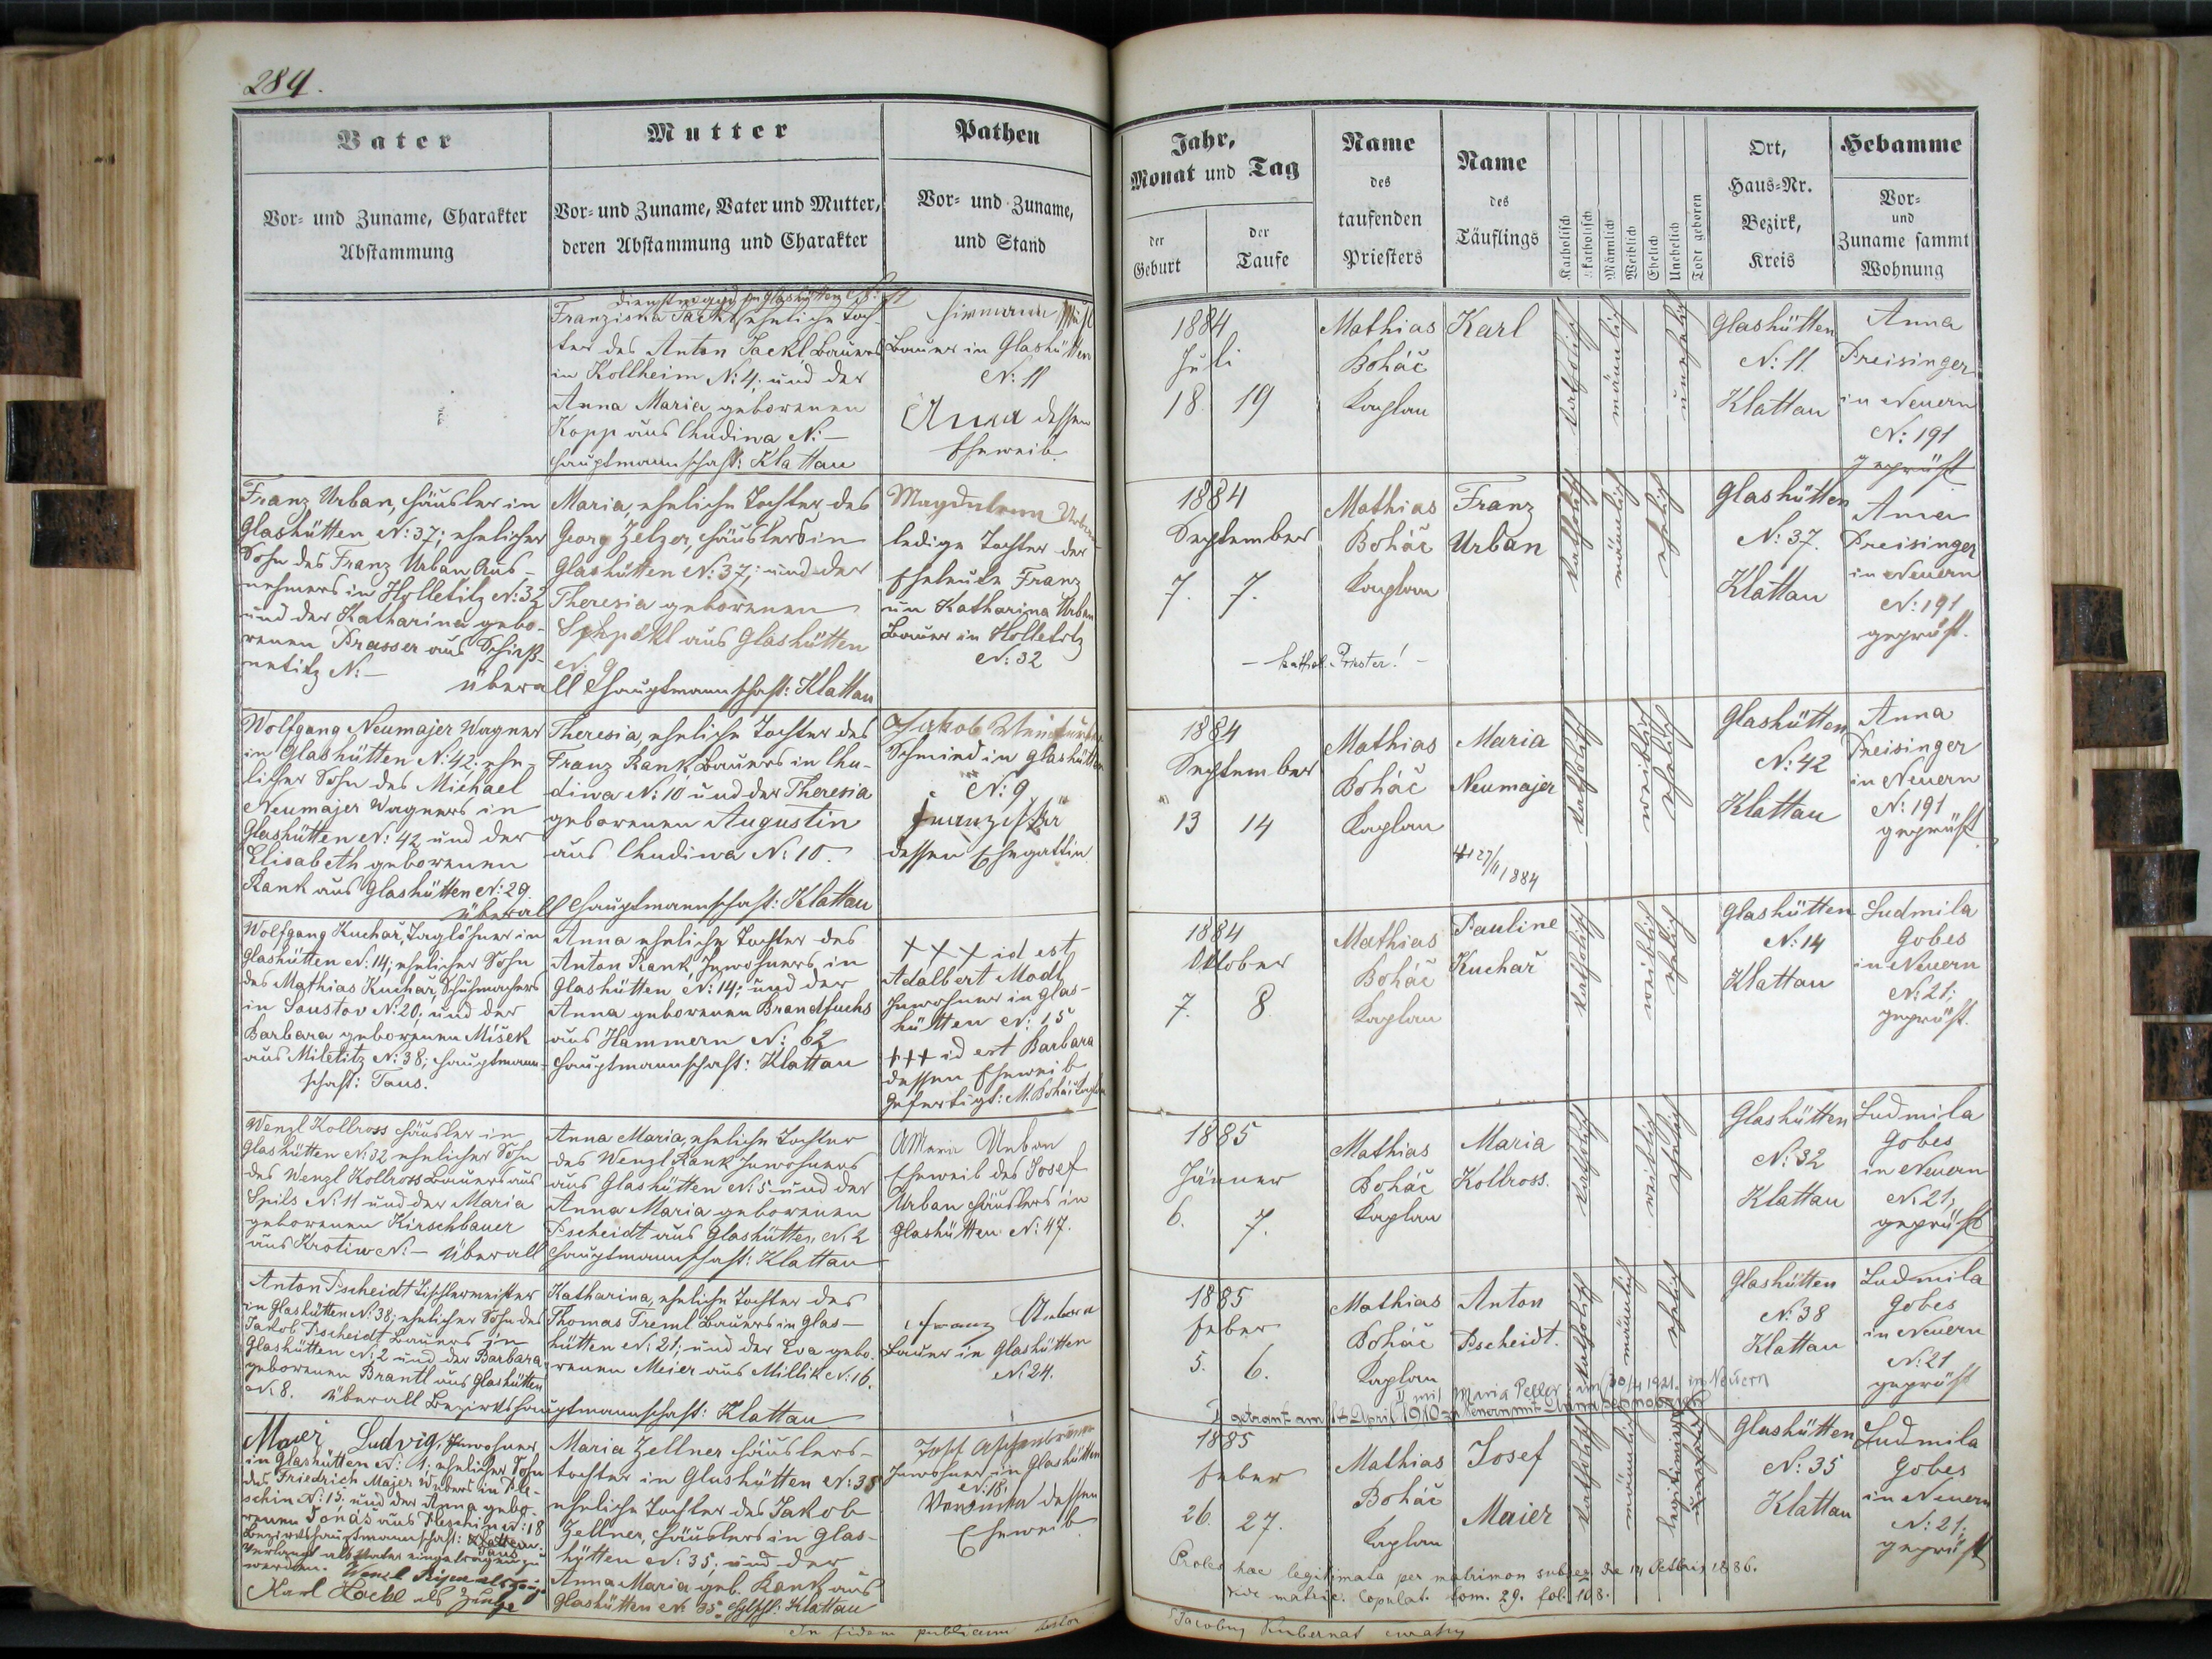 284.
Vater
Vor- und Zuname, Charakter
Abstammung
Mutter
Vor- und Zuname, Vater und Mutter,
deren Abstammung und Charakter
Pathen
Vor- und Zuname,
und Stand
Jahr,
Monat und Tag
der
Geburt
der
Taufe
Name
des
taufenden
Priesters
Name
des
Täuflings
Katholisch
Akatholisch
Männlich
Weiblich
Ehelich
Unehelich
Todt geboren
Ort,
Haus-Nr.
Bezirk,
Kreis
Hebamme
Vor-
und
Zuname sammt
Wohnung
Dienstmagd in Glashütten N: 11
Franziska Jackl, eheliche Toch-
ter des Anton Jackl Bauers
in Kollheim N: 4; und der
Anna Maria geborenen
Kopp aus Chudiwa N: –
Hauptmannschaft: Klattau
Bauer in Glashütten
N: 11
Anna dessen
Eheweib.
1884
Juli
18. 19
Mathias
Boháč
Kaplan
Karl
katholisch
männlich
unehelich
Glashütten
N: 11.
Klattau
Anna
Preisinger
in Neuern
N: 191
geprüft
Franz Urban, Häusler in
Glashütten N: 37; ehelicher
Sohn des Franz Urban Aus-
nehmers in Holletitz N: 32
und der Katharina gebo-
renen Prasser aus
netitz N: –
überall Hauptmannschaft: Klattau
Maria, eheliche Tochter des
Georg Zelzer, Häuslers in
Glashütten N: 37; und der
Theresia geborenen
aus Glashütten
N: 9
Magdalena Urban
ledige Tochter der
Eheleute Franz
un Katharina Urban
Bauer in Holletitz
N: 32
1884
September
7. 7.
Mathias
Boháč
Kaplan
– kathol. Priester! –
Franz
Urban
katholisch
männlich
ehelich
Glashütten
N: 37.
Klattau
Anna
Preisinger
in Neuern
N: 191
geprüft.
Wolfgang Neumajer Wagner
in Glashütten N: 42; ehe-
licher Sohn des Michael
Neumajer Wagners in
Glashütten N: 42 und der
Elisabeth geborenen
Rank aus Glashütten N: 29.
überall Hauptmannschaft: Klattau
Theresia, eheliche Tochter des
Franz Rank, Bauers in Chu-
diwa N: 10 und der Theresia
geborenen Augustin
aus Chudiwa N: 10.
Jakob
Schmied in Glashütten
N: 9
Franziska
dessen Ehegattin
1884
September
13 14
Mathias
Boháč
Kaplan
Maria
Neumajer
† 27/11 1884
katholisch
weiblich
ehelich
Glashütten
N: 42
Klattau
Anna
Preisinger
in Neuern
N: 191
geprüft.
Wolfgang Kuchař, Taglöhner in
Glashütten N: 14; ehelicher Sohn
des Mathias Kuchař, Schuhmachers
in Loustov N: 20; und der
Barbara geborenen Mišek
aus Miletitz N: 38; Hauptmann-
schaft: Taus.
Anna eheliche Tochter des
Anton Rank, Inwohners in
Glashütten N: 14; und der
Anna geborenen Brandfuchs
aus Hammern N: 62
Hauptmannschaft: Klattau
+++ id est
Adalbert Modl
Inwohner in Glas-
hütten N: 15
+++ id est Barbara
dessen Eheweib
Gefertigt: M. Boháč Kaplan
1884
Oktober
7. 8.
Mathias
Boháč
Kaplan
Pauline
Kuchař
katholisch
weiblich
ehelich
Glashütten
N: 14
Klattau
Ludmila
Gobes
in Neuern
N: 21;
geprüft.
Wenzl Kollross Häusler in
Glashütten N: 32 ehelicher Sohn
des Wenzl Kollross Bauers aus
Spils N: 11 und der Maria
geborenen Kirschbauer
aus Krotiw N: – Überall
Anna Maria, eheliche Tochter
des Wenzl Rank Inwohners
aus Glashütten N: 5 und der
Anna Maria geborenen
Pscheidt aus Glashütten N: 2
Hauptmannschaft: Klattau
Maria Urban
Eheweib des Josef
Urban Häuslers in
Glashütten N: 47.
1885
Jänner
6. 7.
Mathias
Boháč
Kaplan
Maria
Kollross.
katholisch
weiblich
ehelich
Glashütten
N: 32
Klattau
Ludmila
Gobes
in Neuern
N: 21;
geprüft
Anton Pscheidt Tischlermeister
in Glashütten N: 38; ehelicher Sohn des
Jakob Pscheidt Bauers in
Glashütten N: 2 und der Barbara
geborenen Brantl aus Glashütten
N: 8. Überall Bezirkshauptmannschaft: Klattau
Katharina, eheliche Tochter des
Thomas Treml Bauers in Glas-
hütten N: 21; und der Eva gebo-
renen Meier aus Millik N: 16.
Franz
Bauer in Glashütten
N: 24.
1885
Feber
5. 6.
Mathias
Boháč
Kaplan
Anton
Pscheidt.
katholisch
männlich
ehelich
Glashütten
N: 38
Klattau
Ludmila
Gobes
in Neuern
N: 21
geprüft
II mit Maria Peller am 30/4 1921. in Neuern
I getraut am April 1910 in Neuern mit Anna
Maier Ludvig, Inwohner
in Glashütten N: 1; ehelicher Sohn
des Friedrich Majer Webers in Ple-
schin N: 15; und der Anna gebo-
renen Jonáš aus Pleschin N: 18
Bezirkshauptmannschaft: Klattau.
Taus
Verlangt als Vater eingetragen zu
werden. Wenzl als Zeuge
Karl Hackl als Zeuge
Maria Zellner Häuslers-
tochter in Glashütten N: 35
eheliche Tochter des Jakob
Zellner, Häuslers in Glas-
hütten N: 35; und der
Anna Maria geb. Rank aus
Glashütten N: 35. Klattau
Josef Aschenbrenner
Inwohner in Glashütten
N: 18.
dessen
Eheweib.
1885
Feber
26. 27.
Mathias
Boháč
Kaplan
Josef
Maier
katholisch
männlich
legitimiert
unehelich
Glashütten
N: 35
Klattau
Ludmila
Gobes
in Neuern
N: 21;
geprüft
Proles haec legitimata per matrimon. subseq. 1886.
vide matric. Copulat. tom. 29. fol. 168.
In fidem publicam testor Jacobus Kubernat